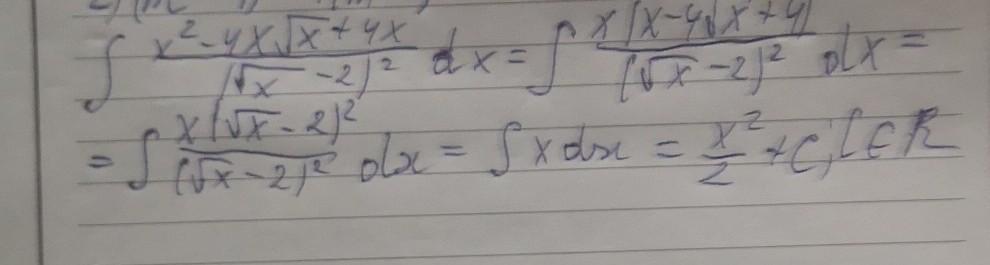 ∫ (x² - 4x√x + 4x)/(√x - 2)² dx = ∫ x(x - 4√x + 4)/(√x - 2)² dx =
= ∫ x(√x - 2)²/(√x - 2)² dx = ∫ x dx = x²/2 + C, C ∈ R